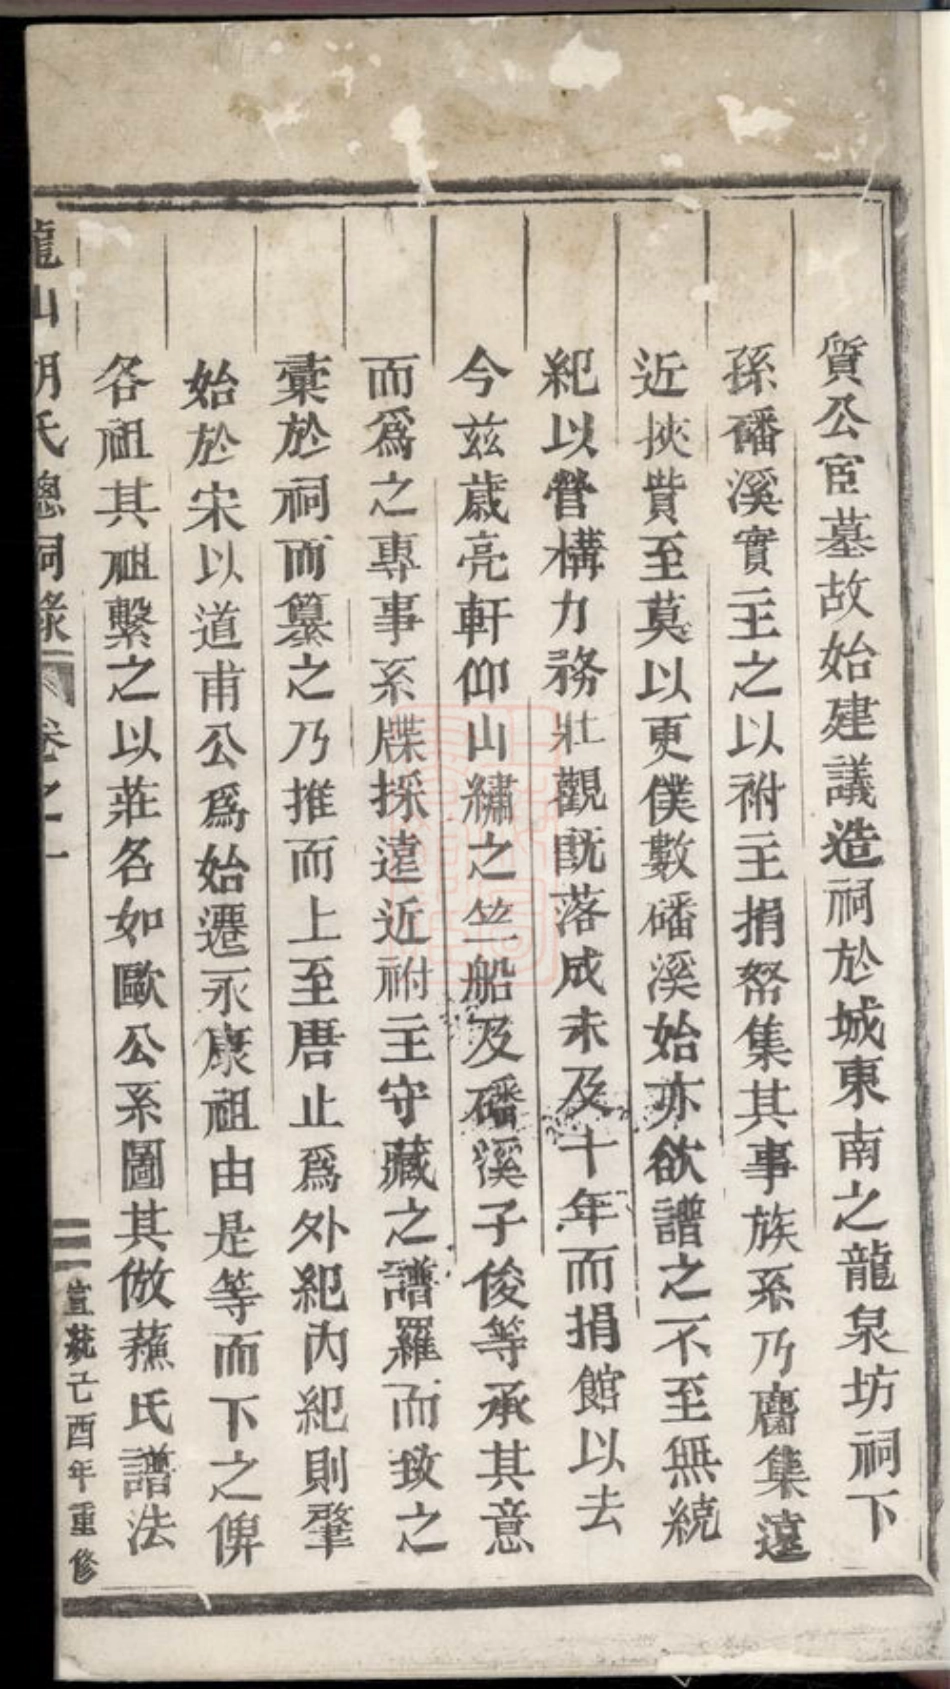 質公宦墓故始建議造祠於城東南之龍泉坊祠下
孫磻溪實主之以祔主捐帑集其事族系乃麕集遠
近挾貲至莫以更僕數磻溪始亦欲譜之不至無統
紀以營構力務壯觀旣落成未及十年而捐館以去
今兹歲亮軒仰山繡之竺船及磻溪子俊等承其意
而爲之專事系牒採遠近祔主守藏之譜羅而致之
彙於祠而纂之乃推而上至唐止爲外紀內紀則肇
始於宋以道甫公爲始遷永康祖由是等而下之俾
各祖其祖繫之以莊名如歐公系圖其倣蘇氏譜法
龍山胡氏總祠錄 卷之一
宣統己酉年重修